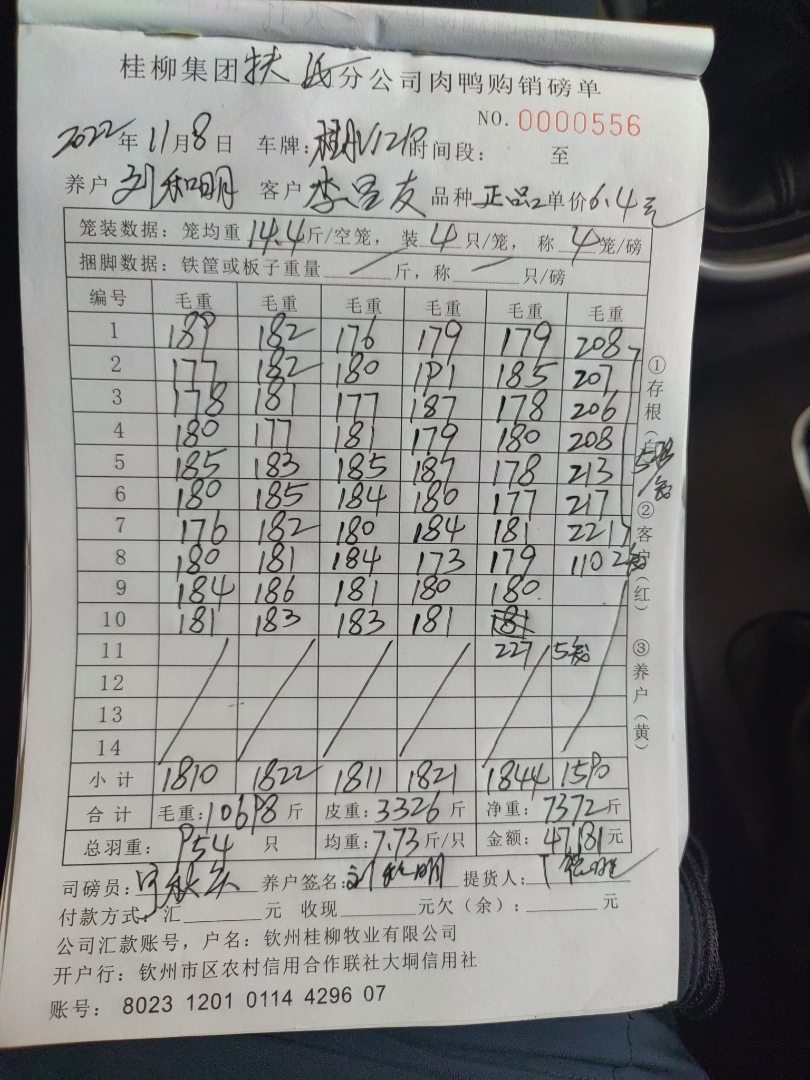 桂柳集团扶 分公司肉鸭购销磅单
NO. 0000556
2022年11月8日 车牌: 时间段: 至
养户 刘和明 客户 李 友 品种 正品2 单价6.4元
笼装数据: 笼均重14.4斤/空笼, 装4只/笼, 称4笼/磅
捆脚数据: 铁筐或板子重量 / 斤, 称 — 只/磅
编号 毛重 毛重 毛重 毛重 毛重 毛重
1 189 182 176 179 179 208
2 177 182 180 191 185 207
3 178 181 177 187 178 206
4 180 177 181 179 180 208
5 185 183 185 187 178 213
6 180 185 184 180 177 217
7 176 182 180 184 181 221
8 180 181 184 173 179 110
9 184 186 181 180 180
10 181 183 183 181 181
11 227 5
12
13
14
小计 1810 1822 1811 1821 1844 1590
合计 毛重:10698斤 皮重:3326斤 净重:7372斤
总羽重: 954只 均重:7.73斤/只 金额:47181元
司磅员: 养户签名:刘和明 提货人:
付款方式: 汇 元 收现 元欠(余): 元
公司汇款账号, 户名: 钦州桂柳牧业有限公司
开户行: 钦州市区农村信用合作联社大垌信用社
账号: 8023 1201 0114 4296 07
①存根(白
②客户(红)
③养户(黄)